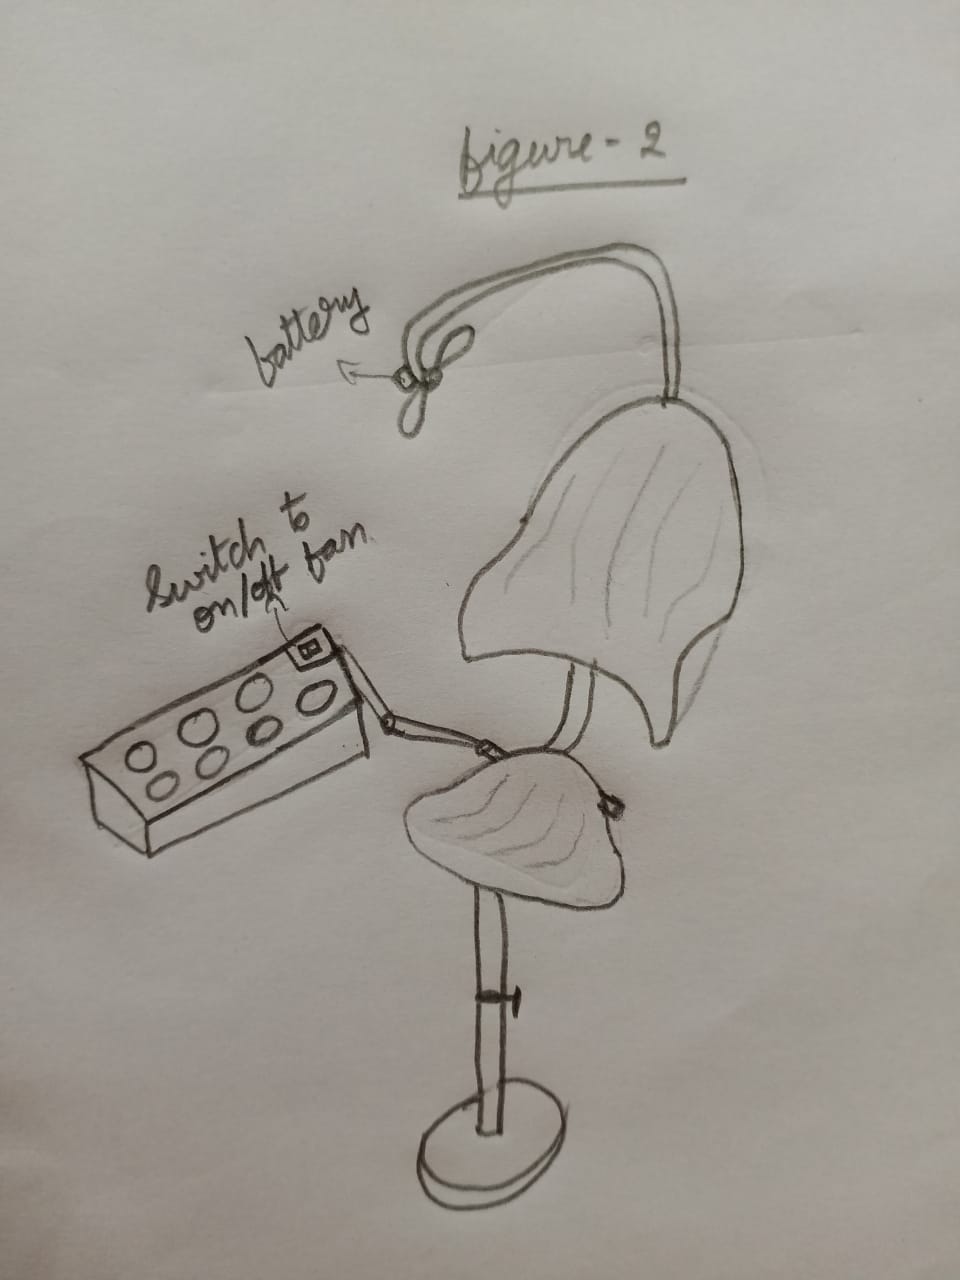 figure - 2
battery
Switch to
on/off fan.